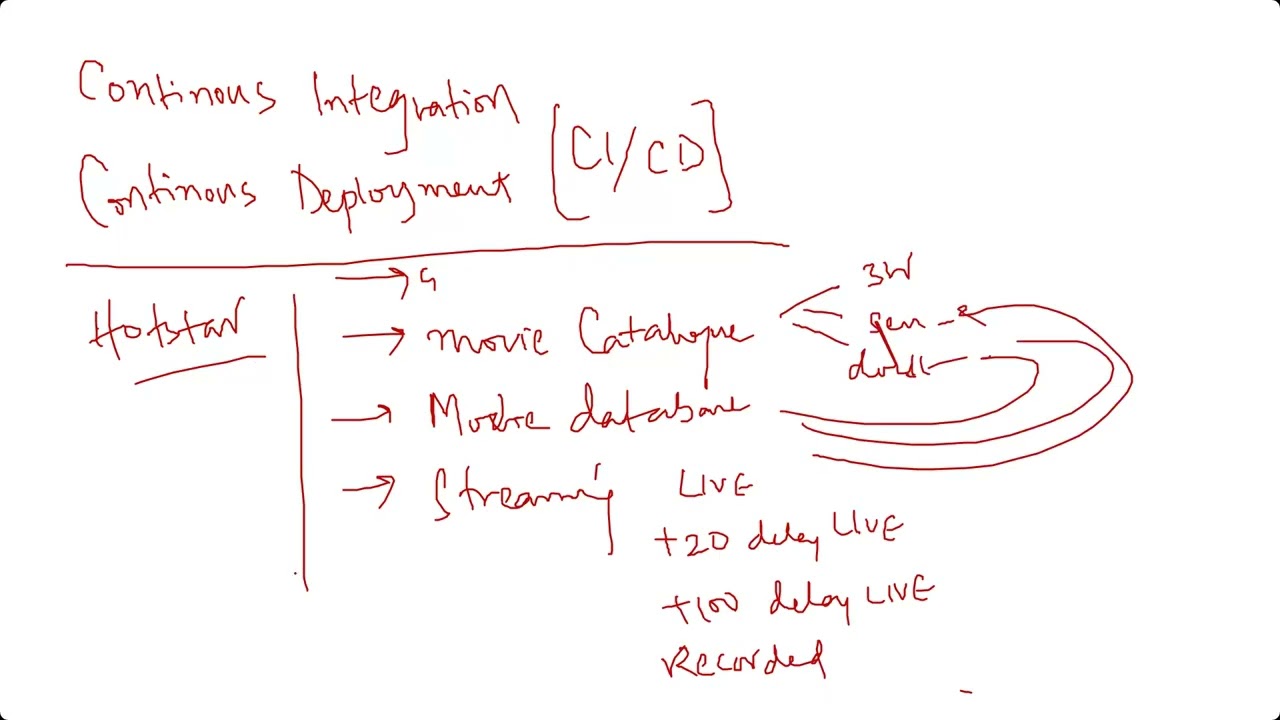 Continous Integration
Continous Deployment [CI/CD]
Hotstar
→ G
→ movie Catalogue
3W
gen -
→ Movie database
→ Streaming LIVE
+20 delay LIVE
+100 delay LIVE
Recorded